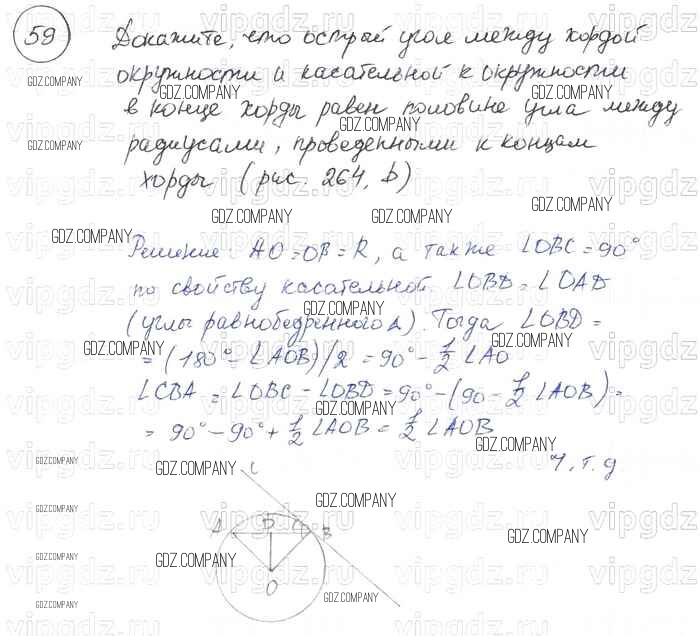 59
Докажите, что острый угол между хордой
окружности и касательной к окружности
в конце хорды равен половине угла между
радиусами, проведенными к концам
хорды (рис. 264, b)
Решение: AO=OB=R, а также ∠OBC=90°
по свойству касательной. ∠OBD=∠OAD
(углы равнобедренного Δ). Тогда ∠OBD=
=(180°-∠AOB)/2=90°-1/2∠AO
∠CBA=∠OBC-∠OBD=90°-(90-1/2∠AOB)=
=90°-90°+1/2∠AOB=1/2∠AOB
ч.т.д
C
A D B
O
GDZ.COMPANY
vipgdz.ru